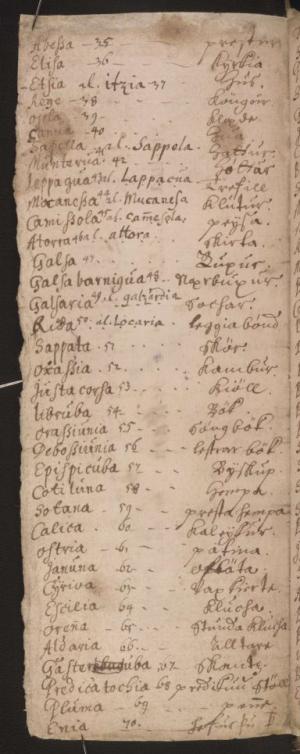 Abessa - 35 - - - prester
Elisa - 36 - - - Kyrkia
Etsia al. itzia 37 Hus.
Rege - 38 - - - Kongur
ogela 39 - - - Klæde
Ganna - 40 - - -
Sapella 41 al. Sappola. Hattur
Munterua. 42 - - -
Leppaqua 43 al. Lappacua - Trefill
Mocanesa 44 al. Mucanesa Klutur.
Camisola 45 al. camesola. peysa.
Atorra 46 al. attora. Skirta.
Galsa 47. - - - Buxur.
Galsa barnigua 48. Nærbuxur.
Galsaria 49 al. galzardia Sockar.
50. al. Locaria. Leggia bönd
Sappata. 51 Skór.
oxassia. 52. - - Kambur.
Justa corsa 53 - - - Kióll.
Libruba 54. - - Bók.
orassiunia 55 - - Söngbók.
Debossiunia 56 - - lestrar bók
Epispicuba 57 - - Byskup.
Cotiluna 58 - - Hempa.
Sotana - 59 - - presta hempa
Calica. 60 - - Kaleykur.
ostria - 61 - - patina.
Januna 62 - - oblata.
Cyriva 63 - - Vaxkerte.
Escilia 64 - - Klucka.
orena - 65 - - Stunda Klucka
Aldaria 66 - - Alltare
67 - -
Predicatochia 68 predikun Stóll
Pluma - 69 - - penne.
Enia 70.